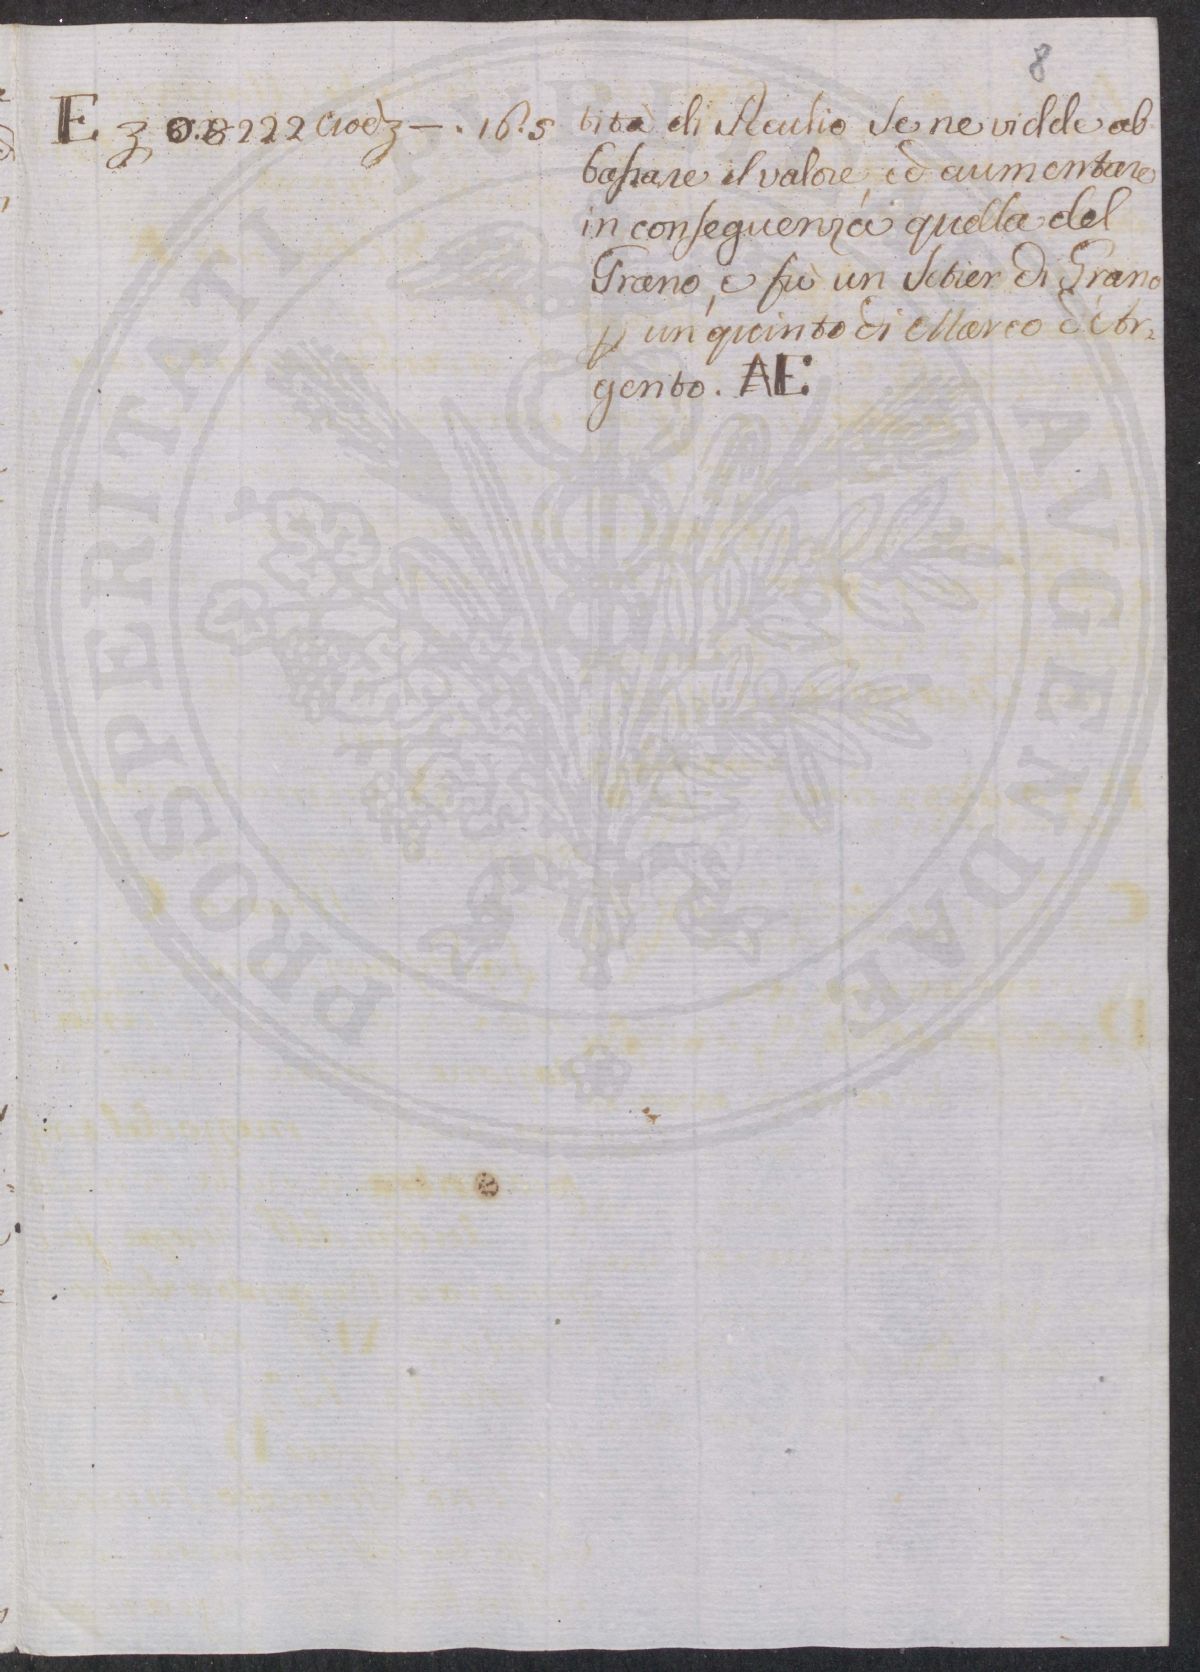 8
E ʒ 0.8222 Cioèʒ — . 16. s
tità di Peculio se ne vidde ab
bassare il valore, ed aumentare
in conseguenza quella del
Grano, e fù un Setier di Grano
un quinto di Marco d'Ar=
gento. AE:
PUBLICAE PROSPERITATI AVGENDAE